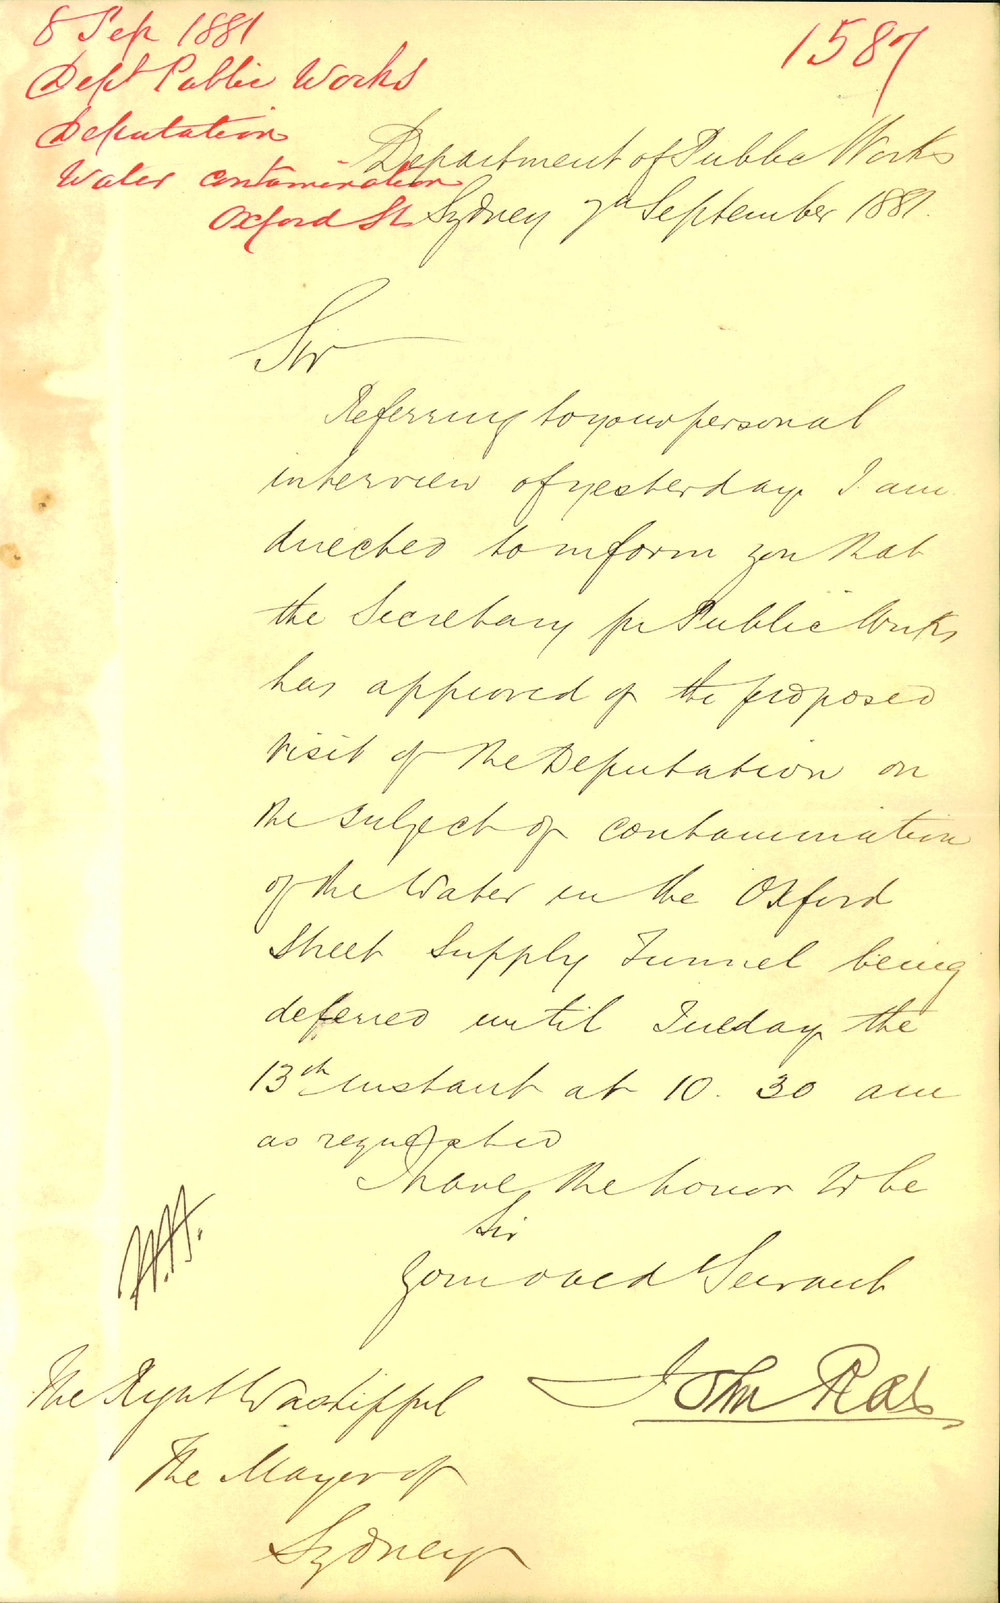 8 Sep 1881
1587
Dept Public Works
Deputation
Water contamination
Oxford St
Department of Public Works
Sydney 7th September 1881.
Sir
Referring to your personal
interview of yesterday I am
directed to inform you that
the Secretary for Public Works
has approved of the proposed
visit of the Deputation on
the subject of contamination
of the Water in the Oxford
Street Supply Tunnel being
deferred until Tuesday the
13th instant at 10.30 am
as requested
I have the honor to be
Sir
Your obed Servant
John Rae
The Right Worshipful
The Mayor of
Sydney